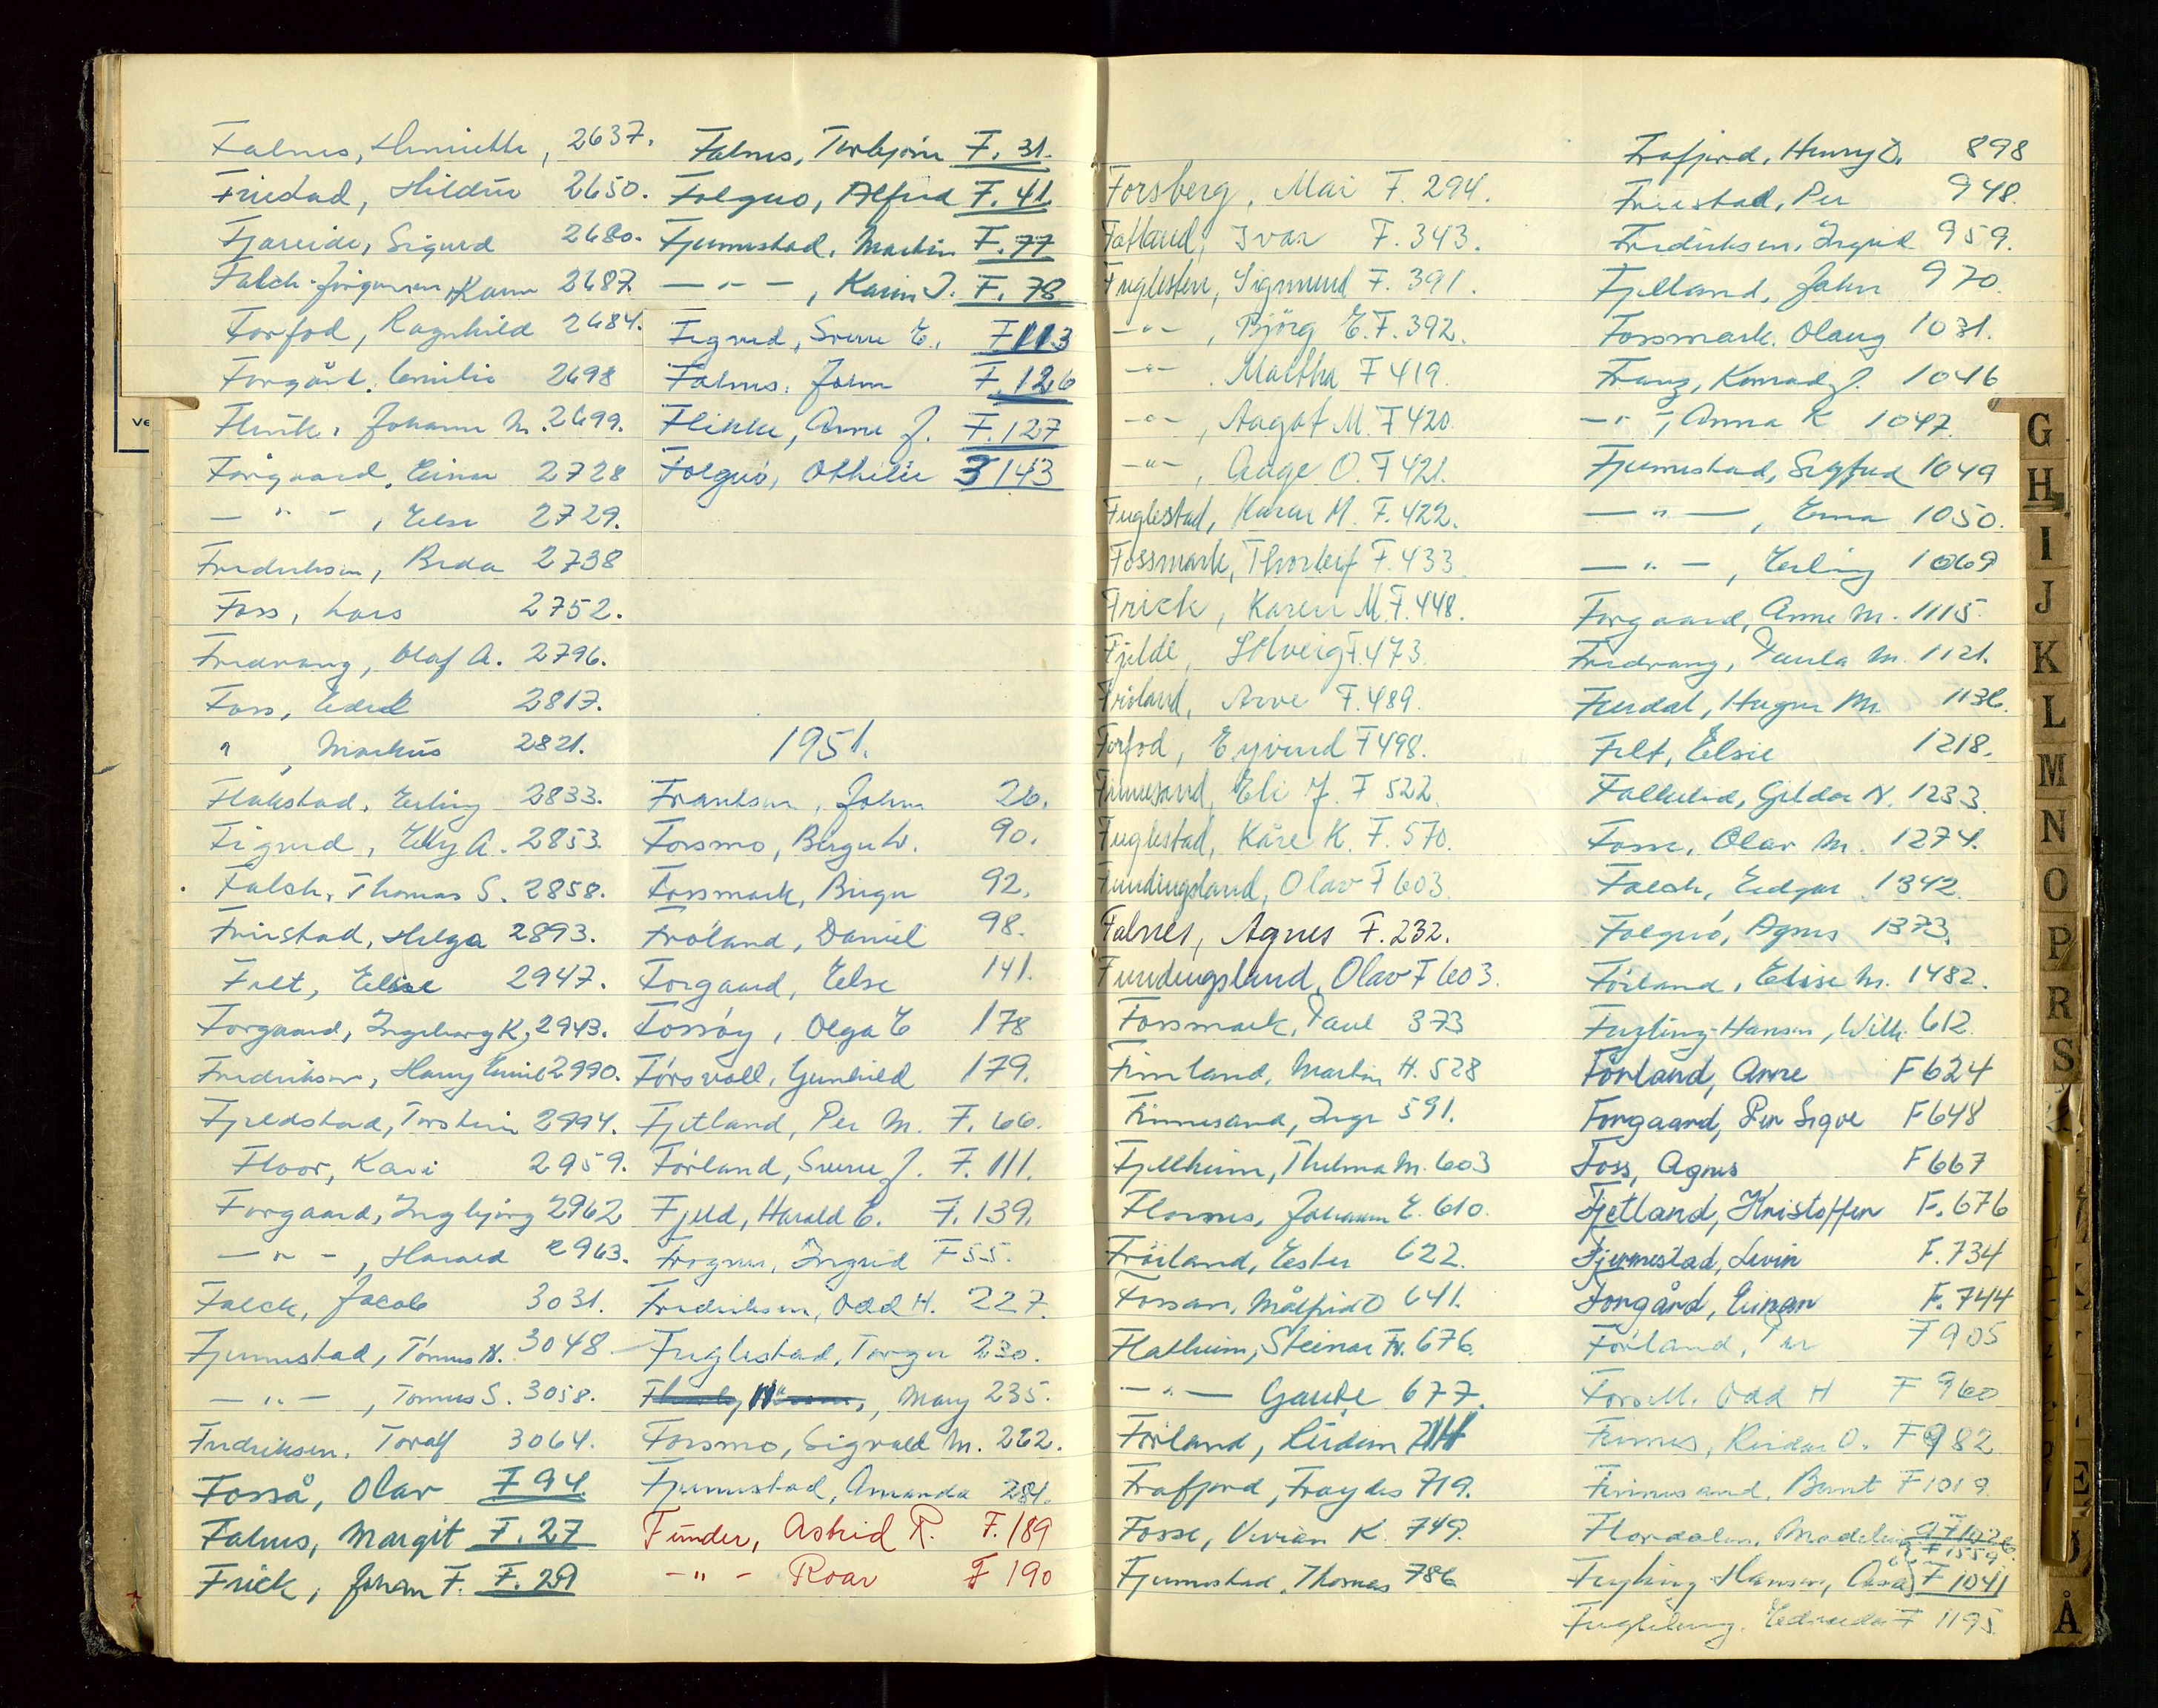 Falnes, Henriette, 2637.
Friestad, Hildur 2650.
Fjæreide, Sigurd 2680.
Falch-Jørgensen, Karen 2687
Forfod, Ragnhild 2684.
Forgård, Emilie 2698
Johanne M. 2699.
Forgaard, Einar 2728
— " — , Else 2729.
Fredriksen, Beda 2738
Foss, Lars 2752.
Fredvang, Olaf A. 2796.
Foss, 2817.
" , Markus 2821.
Flakstad, Erling 2833.
Figved, Elly A. 2853.
Falch, Thomas S. 2858.
Friestad, Helga 2893.
Felt, Elsie 2947.
Forgaard, Ingeborg K, 2943.
Fredriksen, Harry Emil 2990.
Fjeldstad, Torstein 2994.
Floor, Kari 2959.
Forgaard, Ingbjørg 2962
— " — , Harald 2963.
Falck, Jacob 3031.
Fjermestad, Tønnes N. 3048
— " — , Tønnes S. 3058.
Fredriksen, Toralf 3064.
Fosså, Olav F 94.
Falnes, Margit F. 27
Frick, Johan F. F. 29
Falnes, Torbjørn F. 31.
Folgerø, Alfred F. 41.
Fjermestad, Martin F. 77
— " — , Karin J. F. 78
Figved, Sverre E., F 113
Falnes, John F. 126
Flikke, Arne J. F. 127
Folgerø, Othilie 3143
1951.
Frantsen, John 26.
Forsmo, Birger W. 90.
Fossmark, Birger 92.
Frøland, Daniel 98.
Forgaard, Else 141.
Fossøy, Olga E 178
Førsvoll, Gunhild 179.
Fjetland, Per M. F. 66.
Førland, Sverre J. F. 111.
Fjeld, Harald E. F. 139.
Frogner, Ingrid F 55.
Fredriksen, Odd H. 227.
Fuglestad, Torger 230.
Mary 235.
Forsmo, Sigvald M. 262.
Fjermestad, Amanda 281.
Funder, Astrid R. F. 189
— " — Roar F 190
Forsberg, Mai F. 294.
Fatland, Ivar F. 343.
Fuglestein, Sigmund F. 391.
— " — , Bjørg E. F. 392.
— " — , Martha F 419.
— " — , Aagot M. F 420.
— " — , Aage O. F 421.
Fuglestad, Karen M. F. 422.
Fossmark, Thorleif F. 433
Frick, Karen M. F. 448.
Fjelde, Solveig F. 473.
Frøland, Arve F. 489.
Forfod, Eyvind F 498.
Finnesand, Eli J. F 522.
Fuglestad, Kåre K. F. 570.
Fundingsland, Olav F 603.
Falnes, Agnes F. 232.
Fundingsland, Olav F 603.
Fossmark, Paul 373
Finnland, Martin H. 528
Finnesand, Inge 591.
Fjellheim, Thelma M. 603
Flornes, Johannes E. 610.
Frøiland, Ester 622.
Fossan, Målfrid O 641.
Flatheim, Steinar Fr. 676.
— " — Gaute 677.
Førland, Reidun 714
Frafjord, Frøydis 719.
Fosse, Vivian K. 749.
Fjermestad, Thomas 786
Frafjord, Henry O. 898
Friestad, Per 948.
Fredriksen, Ingrid 959.
Fjelland, John 970.
Fossmark, Olaug 1031.
Franz, Konrad J. 1046
— " — , Anna K 1047.
Fjermestad, Sigfred 1049
— " — , Erna 1050.
— " — , Erling 1069
Forgaard, Anne M. 1115.
Fredvang, Paula M. 1121.
Furdal, Hugn M. 1136.
Felt, Elsie 1218.
Falkeid, Gilda N. 1233.
Fosse, Olav M. 1274.
Falch, Edgar 1342
Folgerø, Agnes 1373.
Førland, Elise M. 1482.
Fugling-Hansen, Wilh. 612.
Førland, Anne F 624
Forgaard, Per Sigve F 648
Foss, Agnes F 667
Fjetland, Kristoffer F. 676
Fjermestad, Levin F. 734
Forgård, Einar F. 744
Førland, Per F 905
Forsell, Odd H F 960
Finnes, Reidar O. F 982
Finnesand, Bernt F 1019.
Flordalen, Madeleine F 1026
F 1559.
Fugling Hansen, Aasa F 1041
Fuglberg, Edvarda F 1195
G
H
I
J
K
L
M
N
O
P
R
S
E
Å
Ve